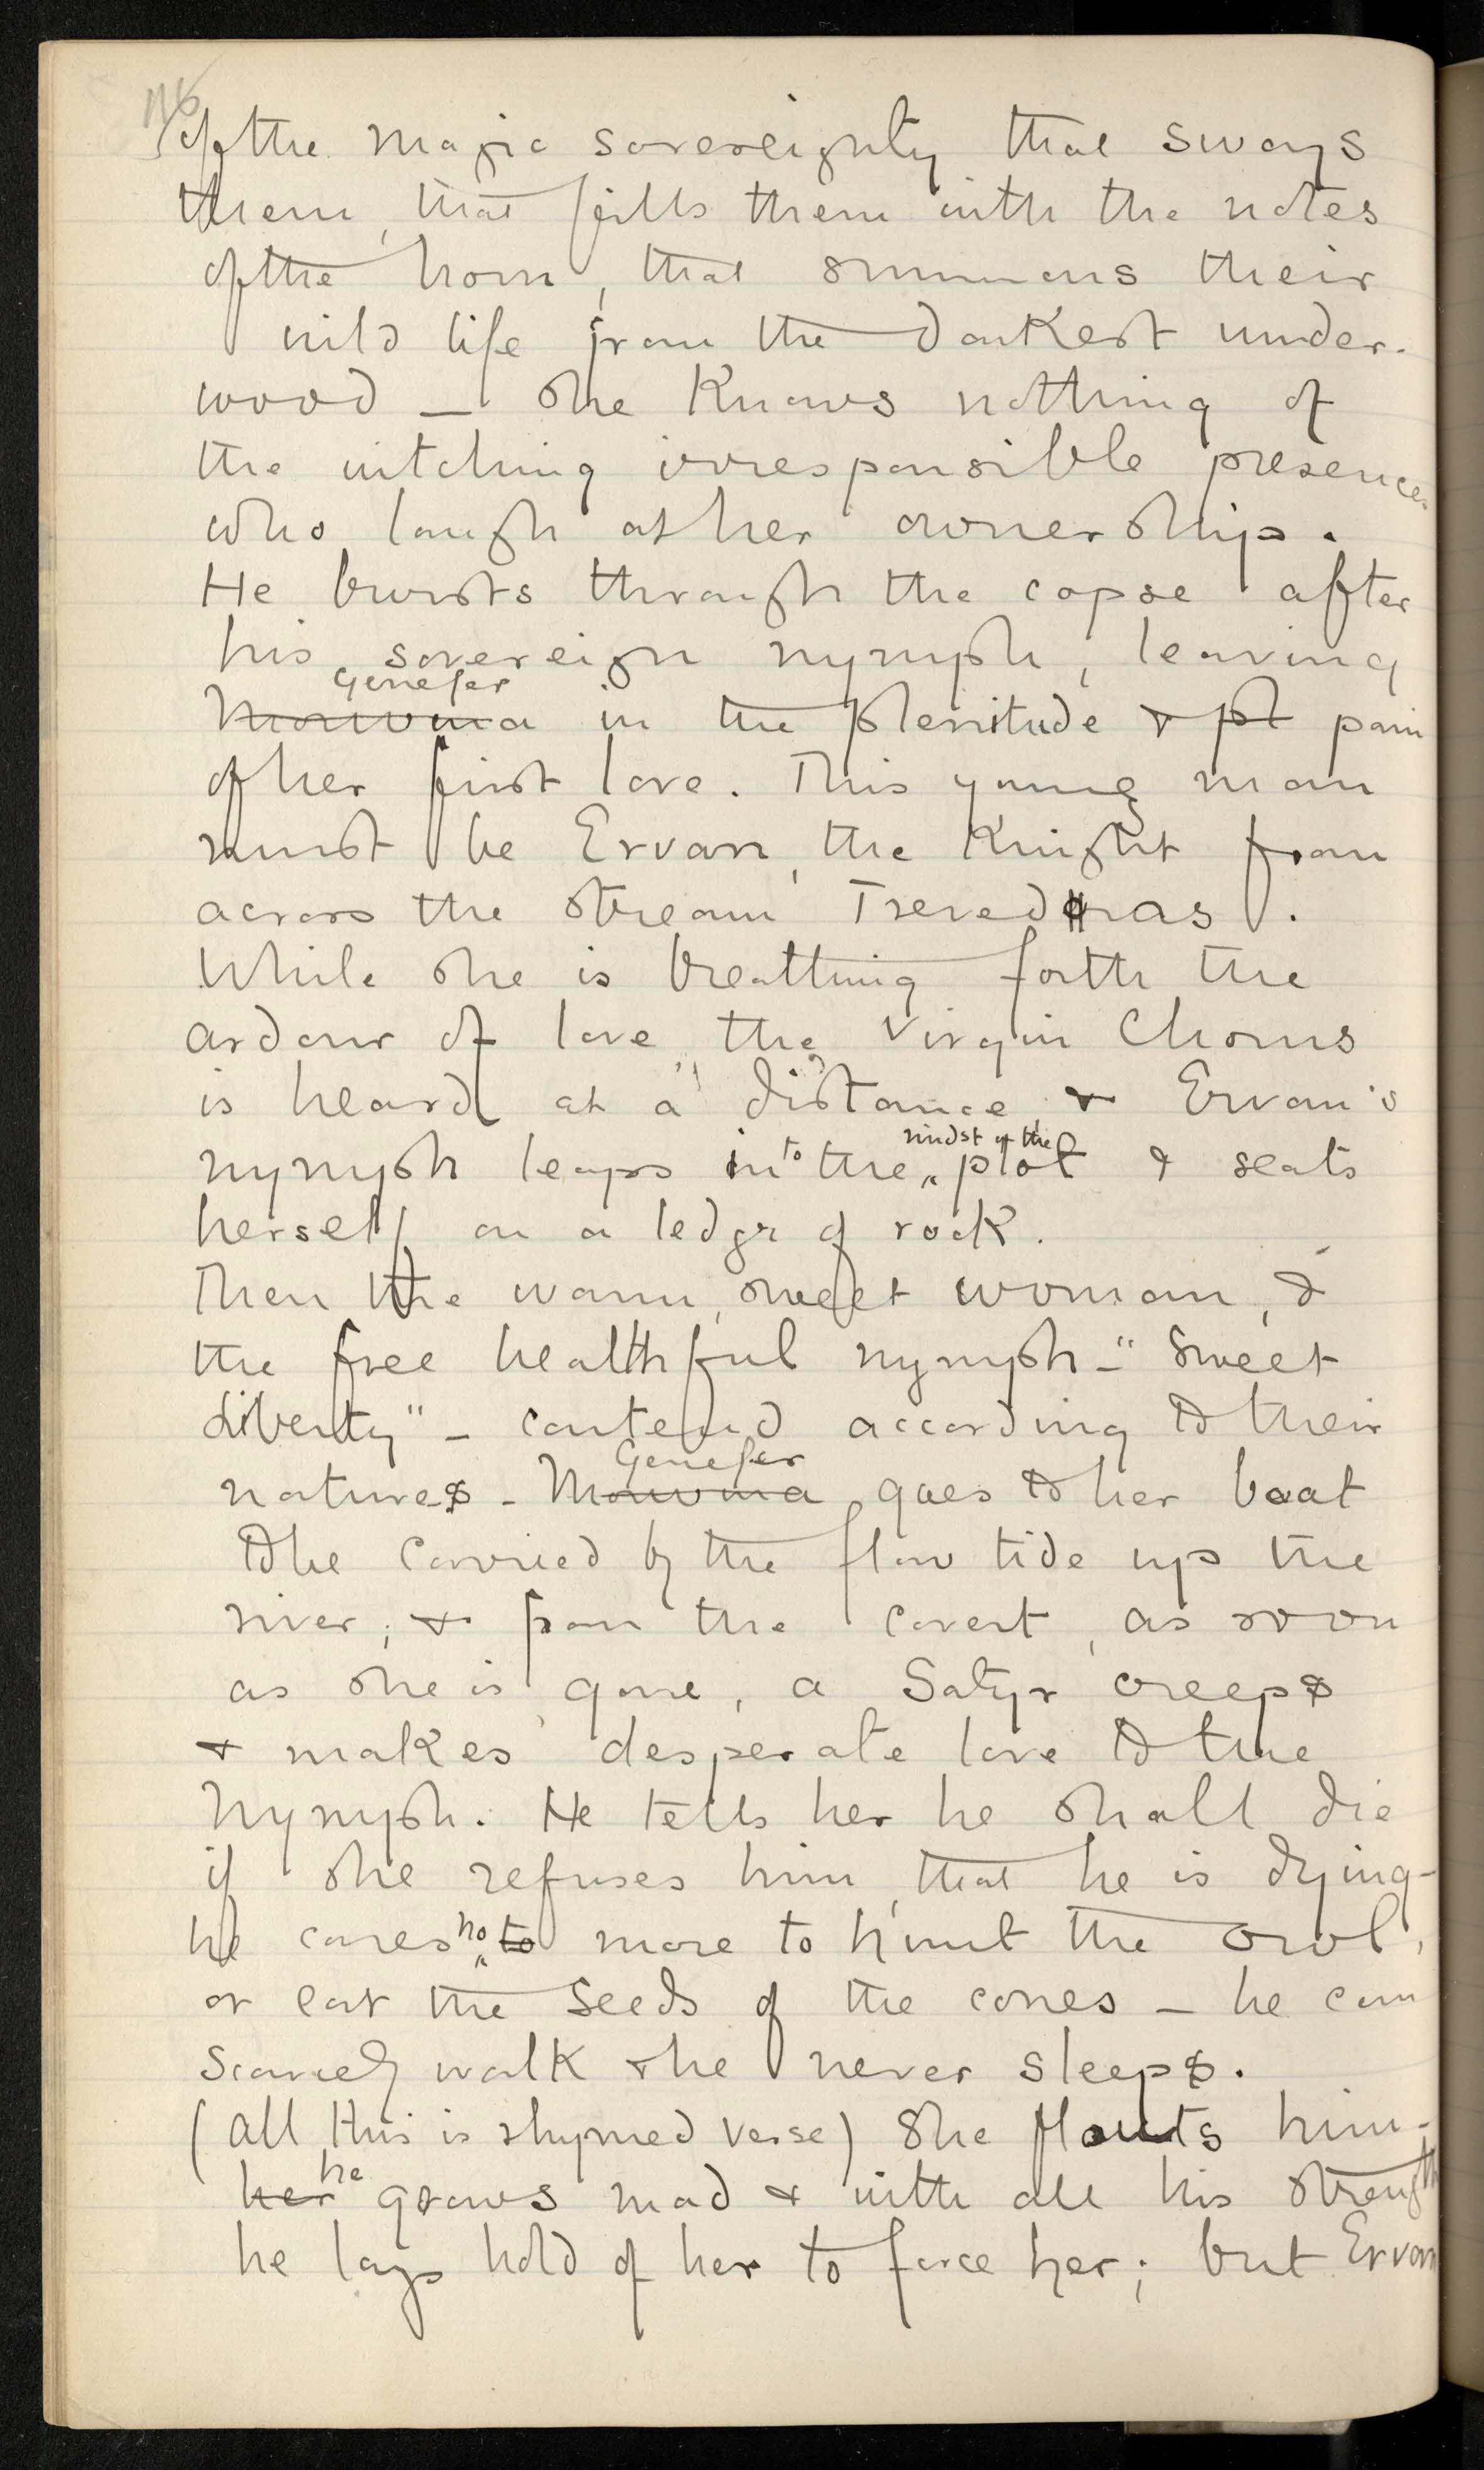 116
of the magic sovereignty that sways
them, that fills them with the notes
of the horn, that summons their
wild life from the darkest under-
wood – she knows nothing of
the witching irresponsible presences
who laugh at her ownership.
He bursts through the copse after
his sovereign nymph, leaving
Genefer
Morwenna in the plenitude & pl pain
of her first love. This young man
must be Ervan, the Knight from
across the stream
While she is breathing forth the
ardour of love, the Virgin Chorus
is heard at a distance & Ervan's
midst of the
nymph leaps into the plot & seats
herself on a ledge of rock.
Then the warm, sweet woman, &
the free healthful nymph – "Sweet
Liberty" – contend according to their
Genefer
natures – Morwenna goes to her boat
to be carried by the flow tide up the
river; & from the covert, as soon
as she is gone, a Satyr creeps
& makes desperate love to the
Nymph. He tells her he shall die
if she refuses him, that he is dying –
he cares no to more to hunt the owl,
or eat the seeds of the cones – he can
scarcely walk & he never sleeps.
(all this is rhymed verse) She flouts him –
he
her grows mad & with all his strength
he lays hold of her to force her; but Ervan